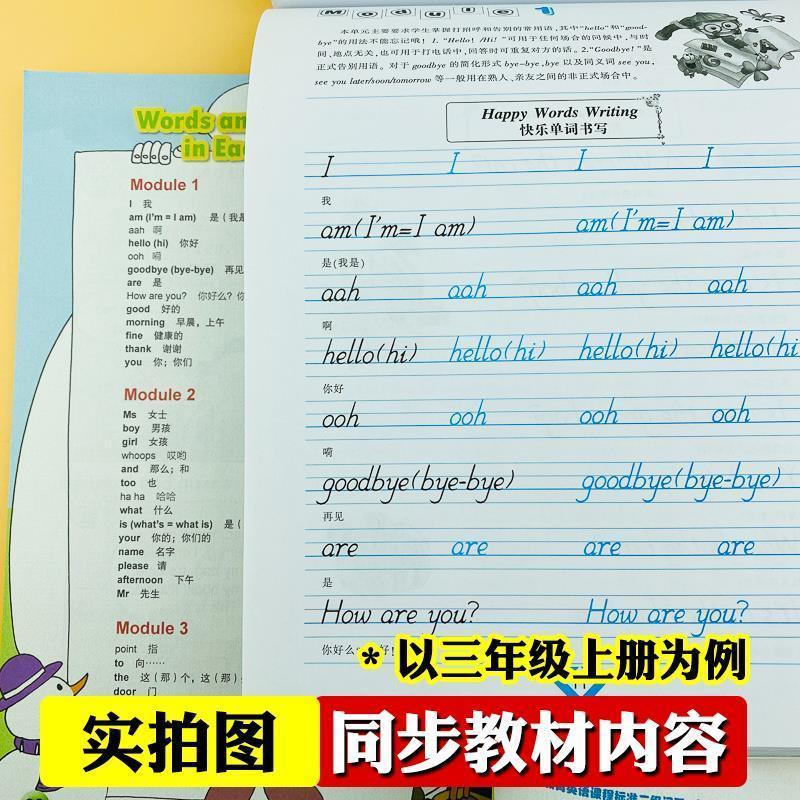 Words an
in Eac
Module 1
I 我
am (I'm = I am) 是（我是
aah 啊
hello (hi) 你好
ooh 嗬
goodbye (bye-bye) 再见
are 是
How are you? 你好么？你
good 好的
morning 早晨，上午
fine 健康的
thank 谢谢
you 你；你们
Module 2
Ms 女士
boy 男孩
girl 女孩
whoops 哎哟
and 那么；和
too 也
ha ha 哈哈
what 什么
is (what's = what is) 是（
your 你的；你们的
name 名字
please 请
afternoon 下午
Mr 先生
Module 3
point 指
to 向……
the 这（那）个，这（那
door 门
Module 1
本单元主要要求学生掌握打招呼和告别的常用语，其中"hello"和"good-
bye"的用法不能忘记哦！1. "Hello! /Hi!"可用于任何场合的问候中，与时
间、地点无关，也可用于打电话中，回答时可重复对方的话。2."Goodbye!"是
正式告别用语。对于 goodbye 的简化形式 bye-bye, bye 以及同义词 see you,
see you later/soon/tomorrow 等一般用在熟人、亲友之间的非正式场合中。
Happy Words Writing
快乐单词书写
I I I I
我
am(I'm=I am) am(I'm=I am)
是(我是)
aah aah aah aah
啊
hello(hi) hello(hi) hello(hi) hello(hi
你好
ooh ooh ooh ooh
嗬
goodbye(bye-bye) goodbye(bye-bye)
再见
are are are are
是
How are you? How are you?
你好么
* 以三年级上册为例
实拍图 同步教材内容